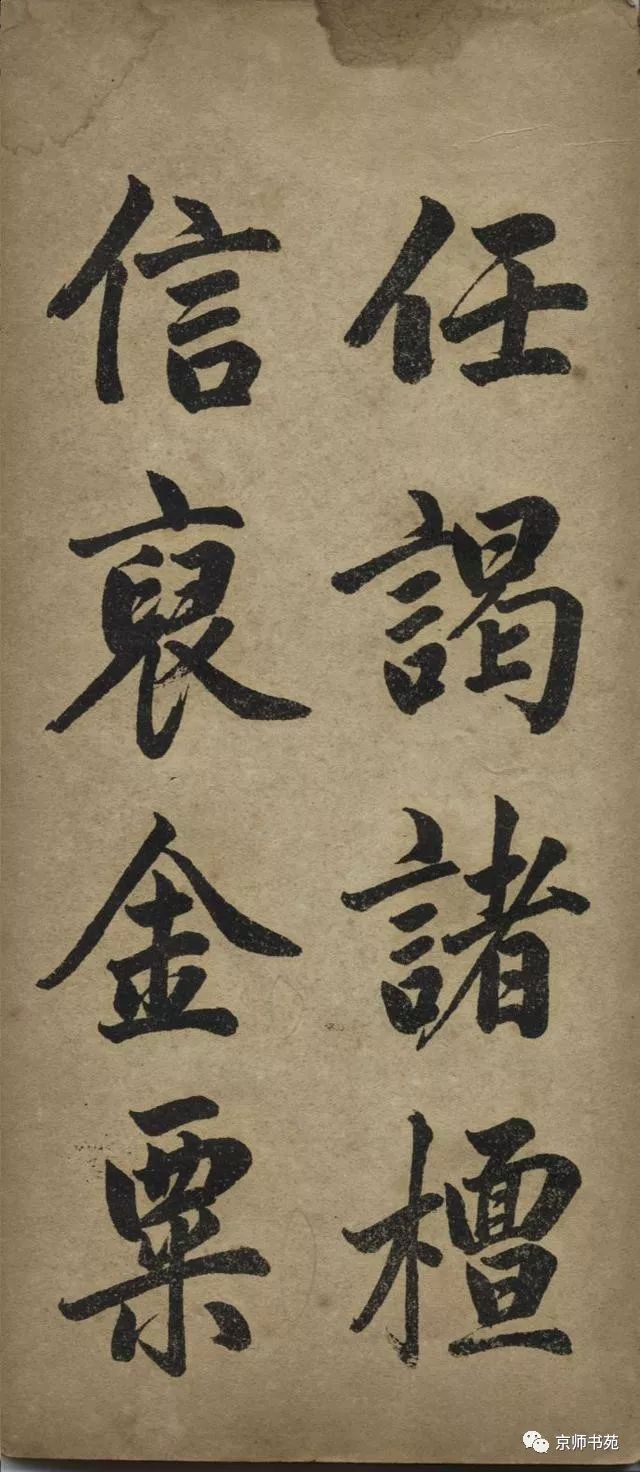 任謁諸檀
信裒金粟
京师书苑